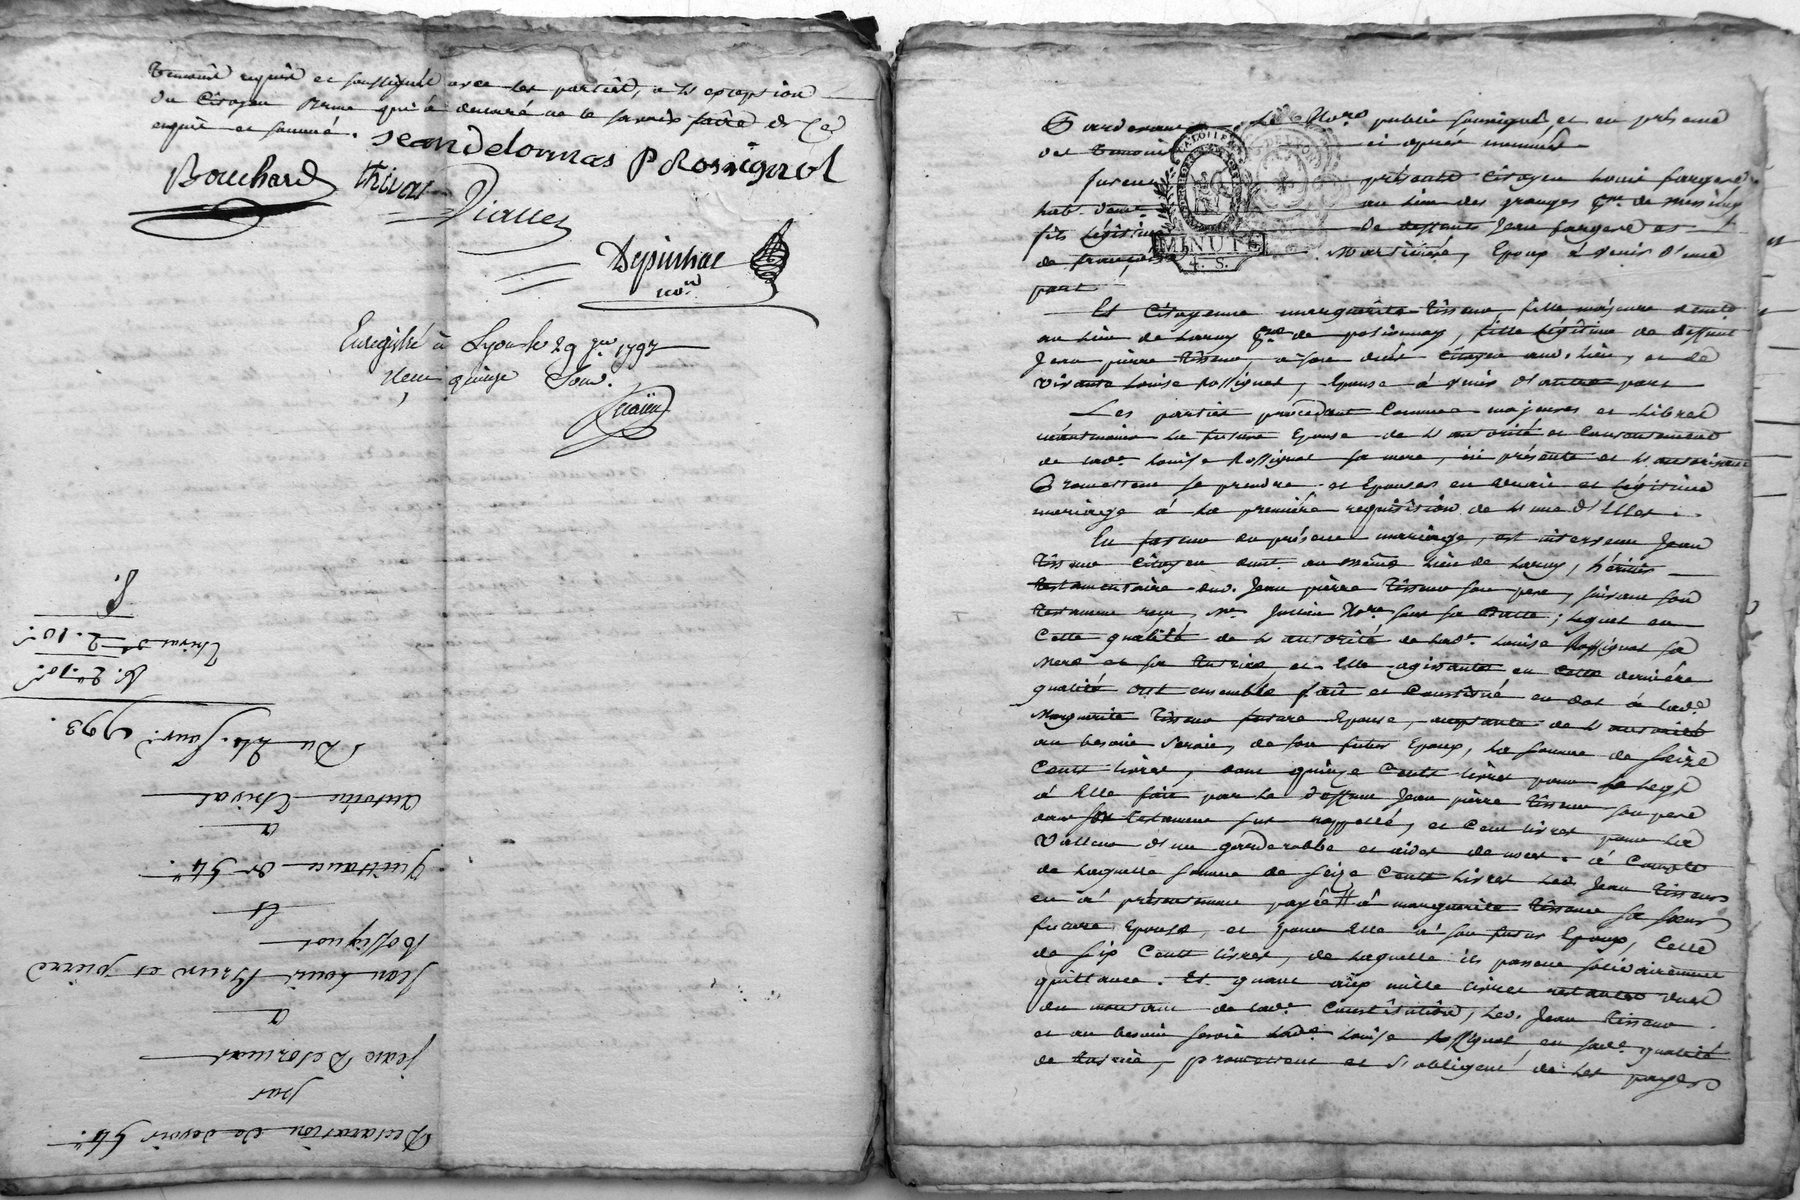 témoins requis et soussignés avec les parties, a l'exception
du Citoyen Brun qui a déclaré ne le savoir faire de ce
enquis et sommé.
Jean delormas P Rossignol
Bouchard thivas
Dialles
Depinhac
no.re
Enregistré à Lyon le 29 1793
Reçu quinze Sous.
8.
Thivas d. 2. 10.s
Du 24. Janv.r 1793.
antoine Thivas
a
quittance de 54.#
Et
Rossignol
Jean Louis Brun et pierre
a
Jean Delormas
par
Déclaration de devoir 54.#
Pardevant Le No.re public soussigné et en présence
des témoins ci après nommés
furent présents Citoyen Louis fargere
hab. dem.t au lieu des granges
fils légitime de deffunts Jean fargere et
de françoise Martinière, Epoux à venir d'une
part
Et Citoyenne marguerite Tisseur fille majeure dem.te
au lieu de Larny p.sse de polionnay, fille légitime de deffunt
Jean pierre Tisseur, a son décès Citoyen aud. lieu, et de
vivante Louise Rossignol, Epouse à venir d'autre part
Les parties procédant Comme majeures et libres
néanmoins la future Epouse de l'autorité et Consentement
de lad.e Louise Rossignol sa mere, ici présente et l'autorisant
Promettent se prendre et Epouser en vraie et légitime
mariage à la première requisition de l'une d'Elles.
En faveur du présent mariage, est intervenu Jean
Tisseur Citoyen dem.t au même lieu de Larny, héritier
testamentaire dud. Jean pierre Tisseur son pere, suivant son
testament reçu, M.e Jullien No.re sous sa datte; lequel en
Cette qualité de l'autorité de lad.e Louise Rossignol sa
Mere et sa tutrice, et Elle agissante en cette derniére
qualité ont ensemble fait et Constitué en dot à lad.e
Marguerite Tisseur future Epouse, acceptante de l'autorité
au besoin seroit, de son futur Epoux, la somme de seize
Cents livres, dont quinze Cents livres pour le legs
à Elle fait par le deffunt Jean pierre Tisseur son pere
dans son testament sus rappellé, et Cent livres pour la
Valleur d'une garderobbe et aides de noces. à Compte
de laquelle somme de seize Cents livres Led. Jean Tisseur
en a présentement payé à marguerite Tisseur sa soeur
future Epouse, et Epoux Elle à son futur Epoux, Celle
de six Cents livres, de laquelle ils passent solidairement
quittance. Et quant aux mille livres restantes dues
du montant de lad.e Constitution, Led. Jean Tisseur
et au besoin seroit lad.e Louise Rossignol, en sad.e qualité
de tutrice, promettent et s'obligent de les payer